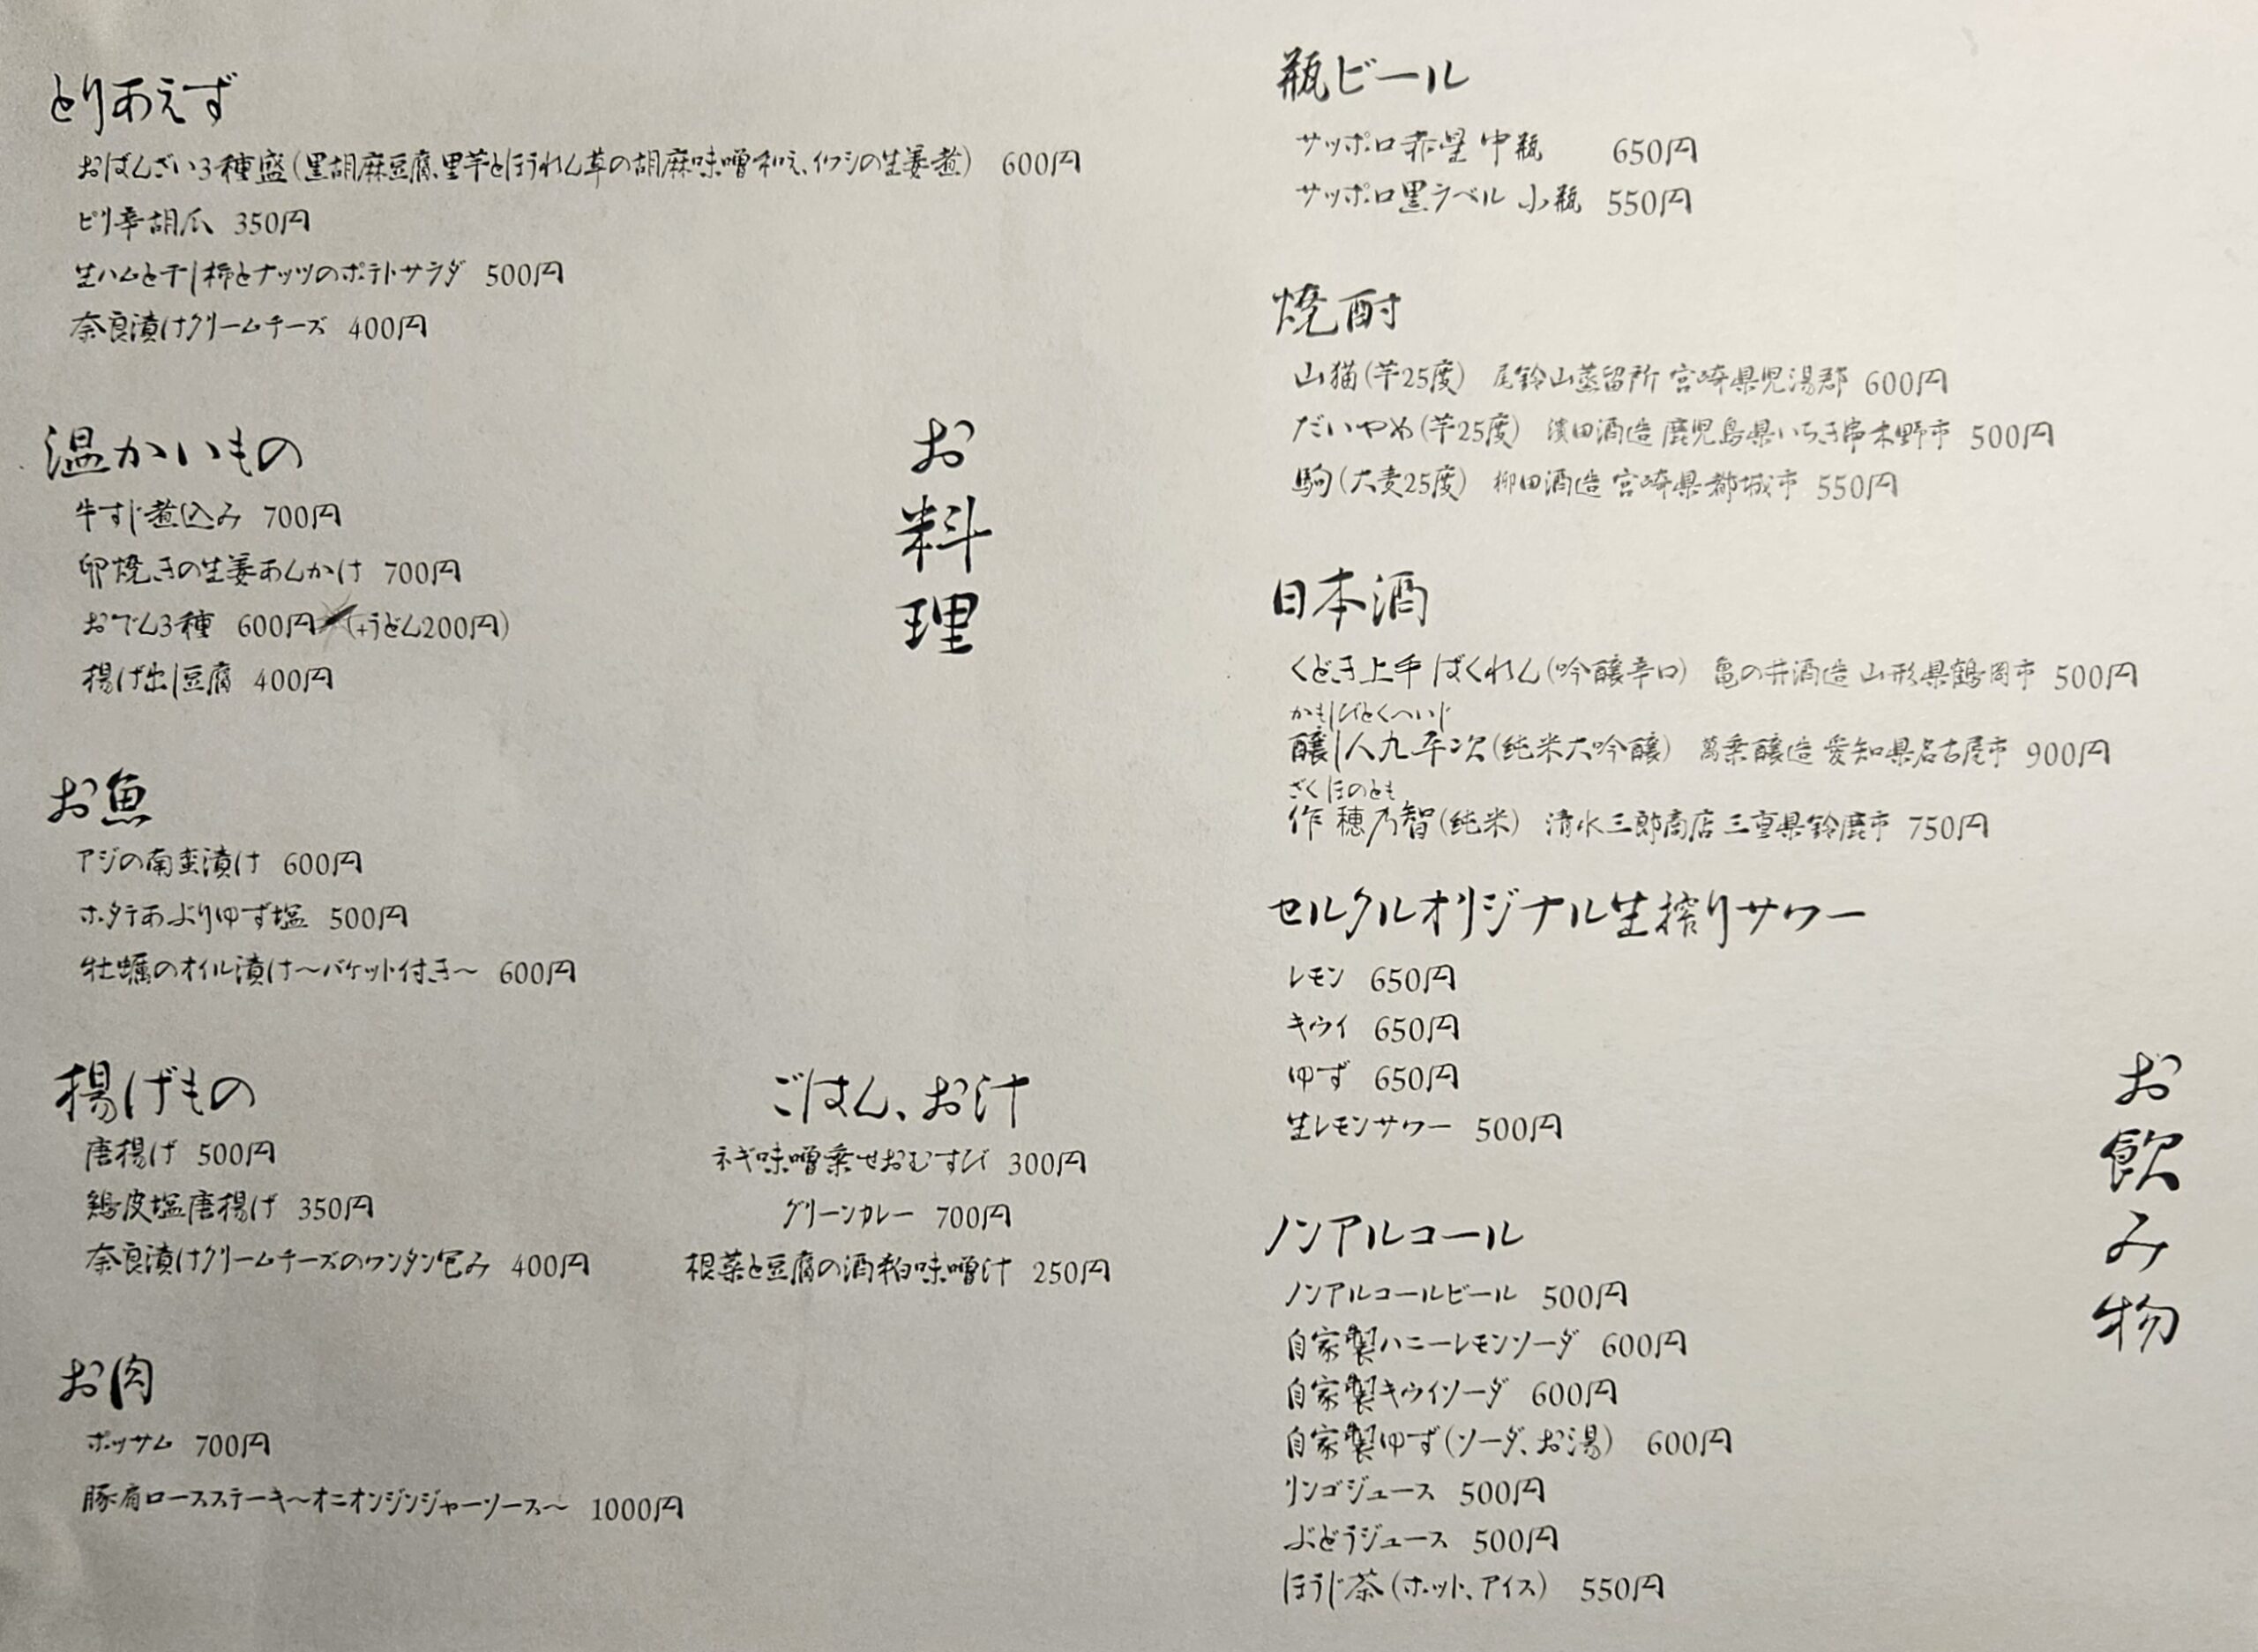 お料理
とりあえず
おばんざい3種盛(黒胡麻豆腐、里芋とほうれん草の胡麻味噌和え、イワシの生姜煮) 600円
ピリ辛胡瓜 350円
生ハムと干し柿とナッツのポテトサラダ 500円
奈良漬けクリームチーズ 400円
温かいもの
牛すじ煮込み 700円
卵焼きの生姜あんかけ 700円
おでん3種 600円 (+うどん200円)
揚げ出し豆腐 400円
お魚
アジの南蛮漬け 600円
ホタテあぶりゆず塩 500円
牡蠣のオイル漬け〜バケット付き〜 600円
揚げもの
唐揚げ 500円
鶏皮塩唐揚げ 350円
奈良漬けクリームチーズのワンタン包み 400円
お肉
ポッサム 700円
豚肩ロースステーキ〜オニオンジンジャーソース〜 1000円
ごはん、お汁
ネギ味噌乗せおむすび 300円
グリーンカレー 700円
根菜と豆腐の酒粕味噌汁 250円
お飲み物
瓶ビール
サッポロ赤星 中瓶 650円
サッポロ黒ラベル 小瓶 550円
焼酎
山猫(芋25度) 尾鈴山蒸留所 宮崎県児湯郡 600円
だいやめ(芋25度) 濵田酒造 鹿児島県いちき串木野市 500円
駒(大麦25度) 柳田酒造 宮崎県都城市 550円
日本酒
くどき上手 ばくれん(吟醸辛口) 亀の井酒造 山形県鶴岡市 500円
かもしびとくへいじ
醸し人九平次(純米大吟醸) 萬乗醸造 愛知県名古屋市 900円
ざく ほのとも
作 穂乃智(純米) 清水三郎商店 三重県鈴鹿市 750円
セルクルオリジナル生搾りサワー
レモン 650円
キウイ 650円
ゆず 650円
生レモンサワー 500円
ノンアルコール
ノンアルコールビール 500円
自家製ハニーレモンソーダ 600円
自家製キウイソーダ 600円
自家製ゆず(ソーダ、お湯) 600円
リンゴジュース 500円
ぶどうジュース 500円
ほうじ茶(ホット、アイス) 550円